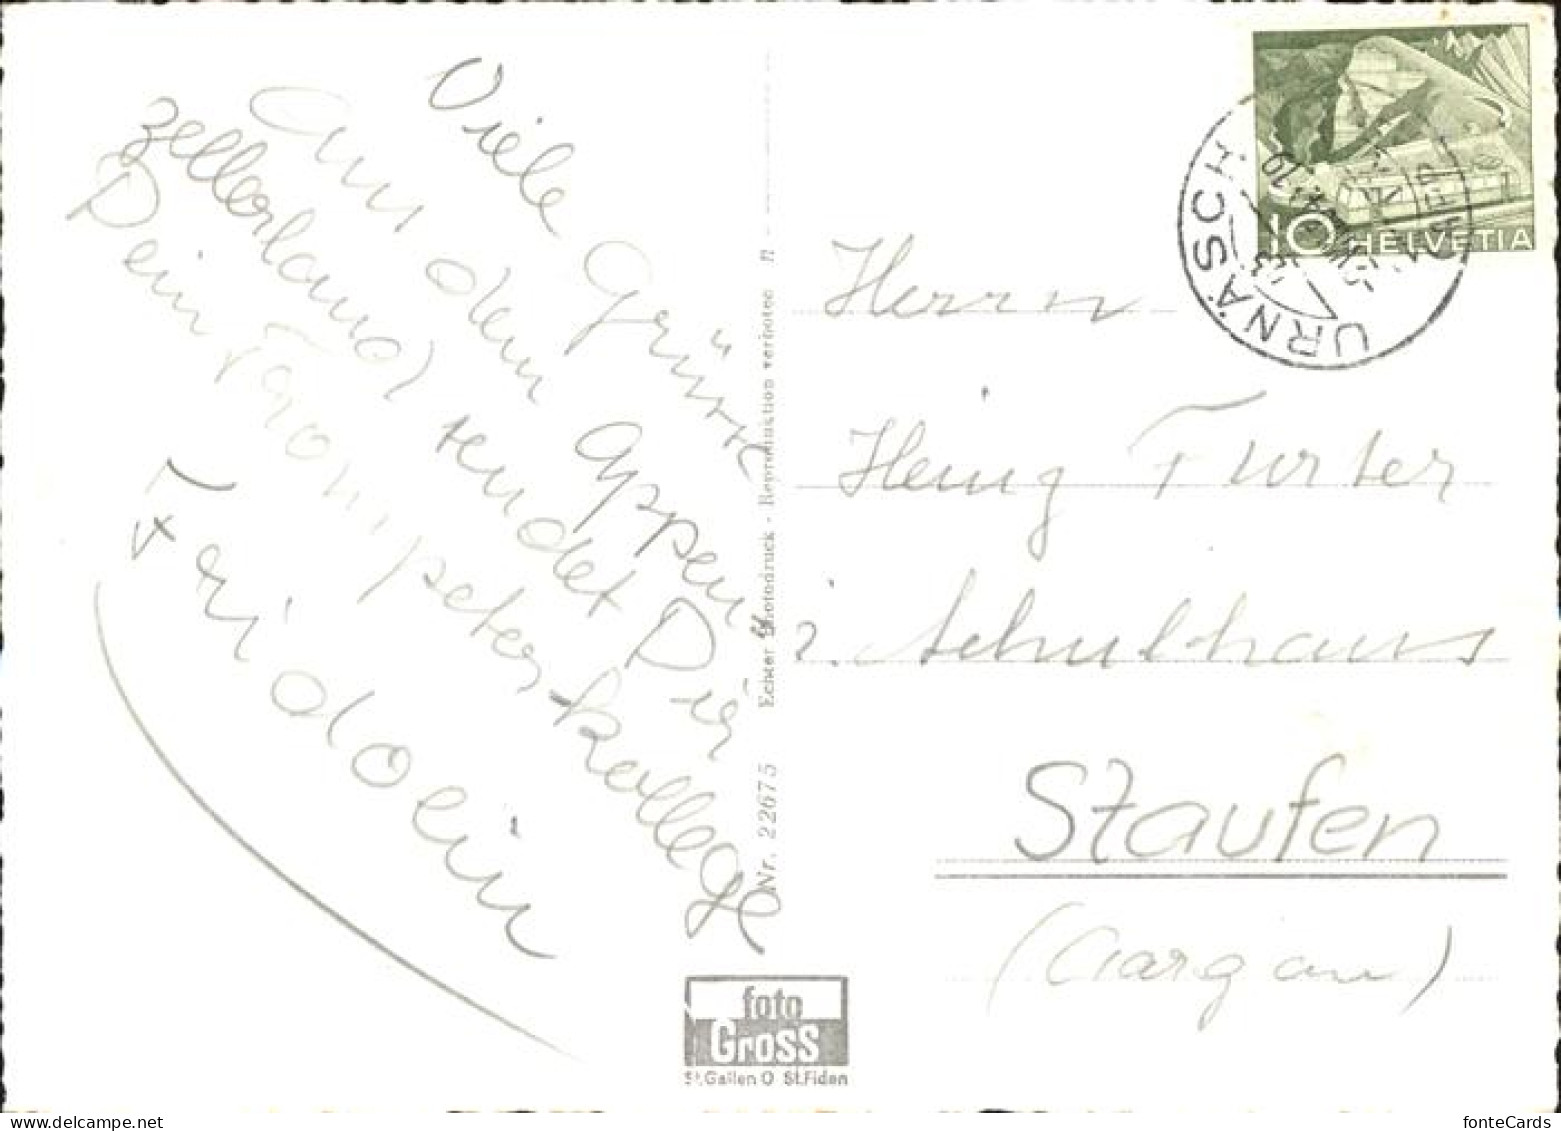 Viele Grüsse
aus dem Appen-
zellerland sendet Dir
Dein Trompeter-kollege
Fridolin
Nr. 22675 Echter Photodruck - Reproduktion verboten
foto
Gross
St.Gallen O St.Fiden
HELVETIA
10
URNÄSCH
Herrn
Heinz Furter
z. Schulhaus
Staufen
(Aargau)
www.delcampe.net
fonteCards